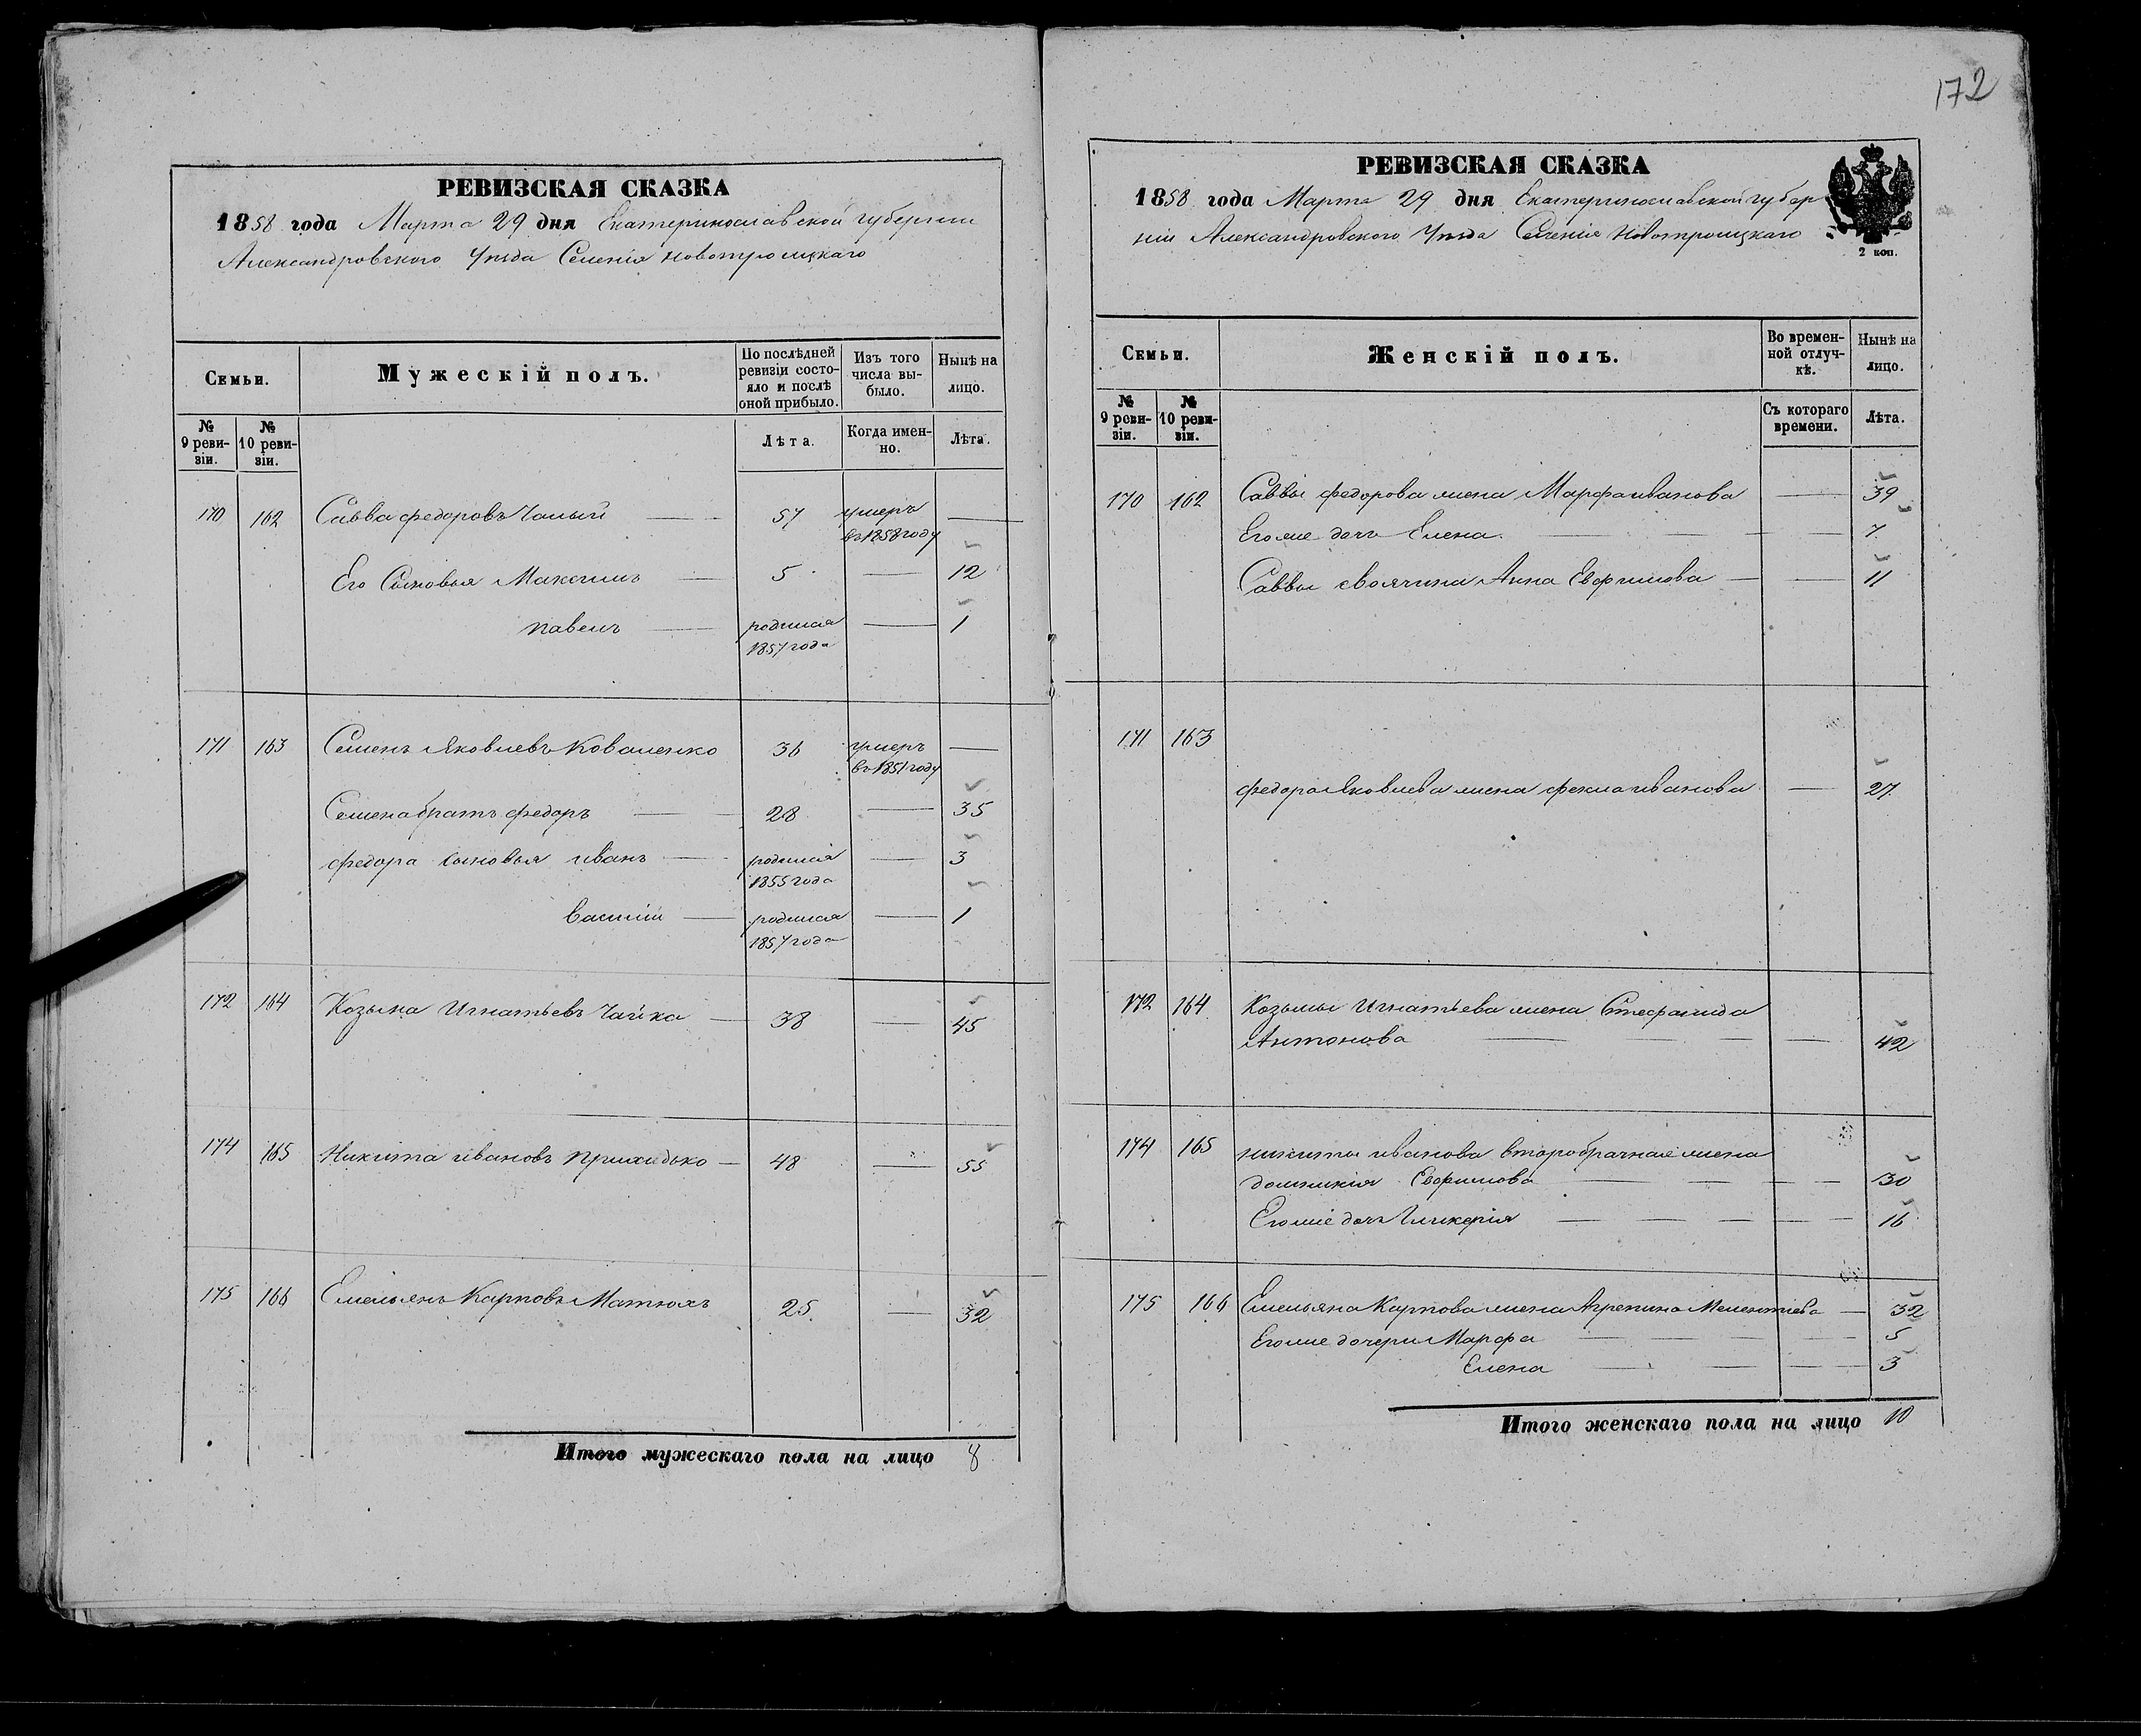 172
РЕВИЗСКАЯ СКАЗКА
1858 года Марта 29 дня Екатеринославской губернии
Александровского Уѣзда Селенія новотроицкаго
Семьи.
Мужескій полъ.
По послѣдней ревизіи состояло и послѣ оной прибыло.
Изъ того числа выбыло.
Нынѣ на лицо.
№ 9 ревизіи.
№ 10 ревизіи.
Лѣта.
Когда именно.
Лѣта.
170 162 Савва федоровъ Чалый — 57 умеръ въ 1858 году —
Его Сыновья Максимъ — 5 — 12
павелъ — родился 1857 года — 1
171 163 Семенъ Яковлевъ Коваленко 36 умеръ въ 1851 году —
Семена братъ федоръ — 28 — 35
федора сыновья иванъ — родился 1855 года — 3
василій — родился 1857 года — 1
172 164 Козьма Игнатьевъ Чайка — 38 — 45
174 165 Никита ивановъ прихидько — 48 — 55
175 166 Емельянъ Карповъ Матюхъ 25 — 32
Итого мужескаго пола на лицо 8
РЕВИЗСКАЯ СКАЗКА
1858 года Марта 29 дня Екатеринославской губер
ніи Александровского Уѣзда Селенія новотроицкаго
2 коп.
Семьи.
Женскій полъ.
Во временной отлучкѣ.
Нынѣ на лицо.
№ 9 ревизіи.
№ 10 ревизіи.
Съ котораго времени.
Лѣта.
170 162 Саввы федорова жена Марфа иванова — 39
Его же дочь Елена — 7
Саввы своячина Анна Евфимова — 11
171 163
федора Яковлева жена фекла иванова — 27
172 164 Козьмы Игнатьева жена Стефанида
Антонова — 42
174 165 никиты иванова второбрачная жена
домникія Евфимова — 30
Его же дочь Гликерія — 16
175 166 Емельяна Карпова жена Агрепина Мелентіева — 32
Его же дочери Марфа — 5
Елена — 3
Итого женскаго пола на лицо 10